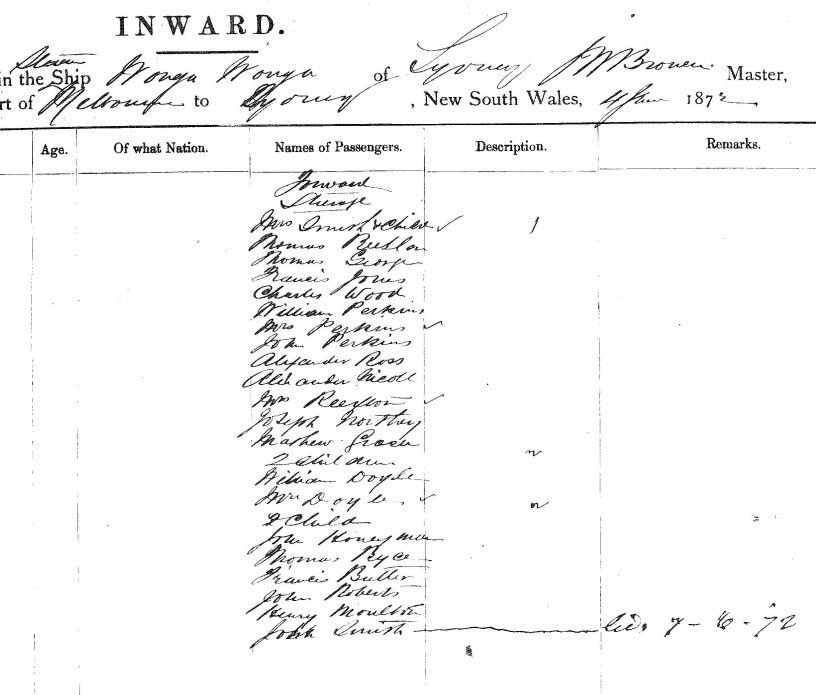 INWARD.
Steamer
in the Ship Wonga Wonga of Sydney J M Brown Master,
rt of Melbourne to Sydney , New South Wales, 4 Jan 1872
Age. Of what Nation. Names of Passengers. Description. Remarks.
Forward
Steerage
Mrs Smith & Child ✓ 1
Thomas
Thomas George
Francis Jones
Charles Wood
William Perkins
Mrs Perkins ✓
John Perkins
Alexander Ross
Alexander Nicoll
Mrs ✓
Joseph Northey
Mathew
2 Children
William Doyle
Mrs Doyle ✓
& Child
John Honeyman
Thomas Pryce
Francis Butler
John Roberts
Henry Moulton
Smith 7 - 6 - 72